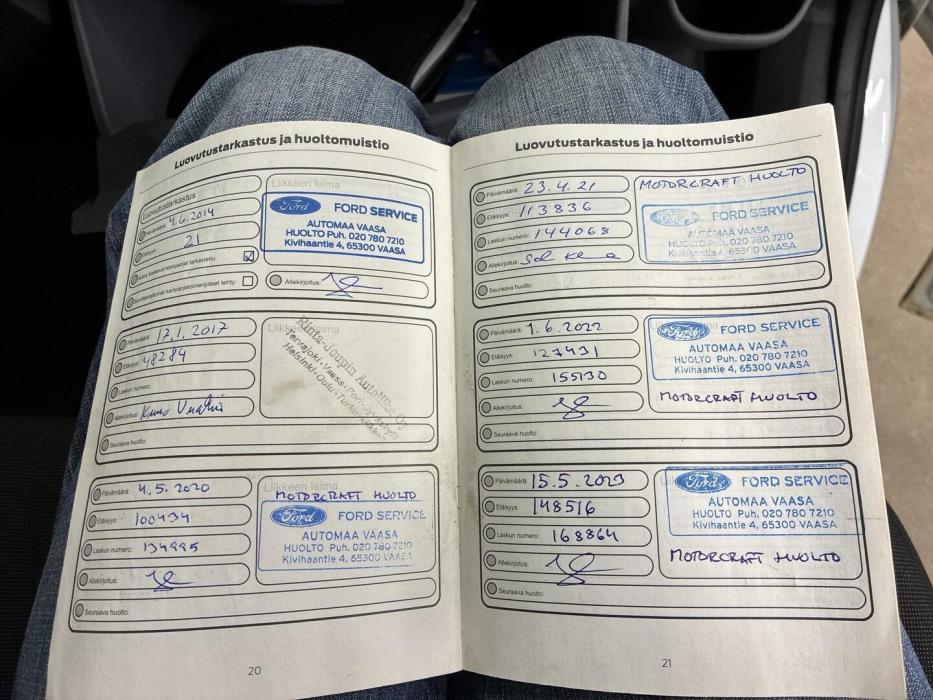 Luovutustarkastus ja huoltomuistio
Luovutustarkastus
Päivämäärä: 4.6.2014
Etäisyys: 21
kampanjat tarkastettu:
kampanjatoimenpiteet tehty:
Liikkeen leima
Ford FORD SERVICE
AUTOMAA VAASA
HUOLTO Puh. 020 780 7210
Kivihaantie 4, 65300 VAASA
Allekirjoitus:
Päivämäärä: 17.1.2017
Etäisyys: 48284
Laskun numero:
Allekirjoitus:
Liikkeen leima
Rinta-Joupin Autoliike Oy
Tervajoki-Vaasa-Pori-Jyväskylä
Helsinki-Oulu-Turku-
Seuraava huolto:
Päivämäärä: 4.5.2020
Etäisyys: 100434
Laskun numero: 134995
Allekirjoitus:
Liikkeen leima
MOTORCRAFT HUOLTO
Ford FORD SERVICE
AUTOMAA VAASA
HUOLTO Puh. 020 780 7210
Kivihaantie 4, 65300 VAASA
Seuraava huolto:
20
Luovutustarkastus ja huoltomuistio
Päivämäärä: 23.4.21
Etäisyys: 113836
Laskun numero: 144068
Allekirjoitus:
MOTORCRAFT HUOLTO
Ford FORD SERVICE
AUTOMAA VAASA
HUOLTO Puh. 020 780 7210
Kivihaantie 4, 65300 VAASA
Seuraava huolto:
Päivämäärä: 1.6.2022
Etäisyys: 127431
Laskun numero: 155130
Allekirjoitus:
Ford FORD SERVICE
AUTOMAA VAASA
HUOLTO Puh. 020 780 7210
Kivihaantie 4, 65300 VAASA
MOTORCRAFT HUOLTO
Seuraava huolto:
Päivämäärä: 15.5.2023
Etäisyys: 148516
Laskun numero: 168864
Allekirjoitus:
Ford FORD SERVICE
AUTOMAA VAASA
HUOLTO Puh. 020 780 7210
Kivihaantie 4, 65300 VAASA
MOTORCRAFT HUOLTO
Seuraava huolto:
21